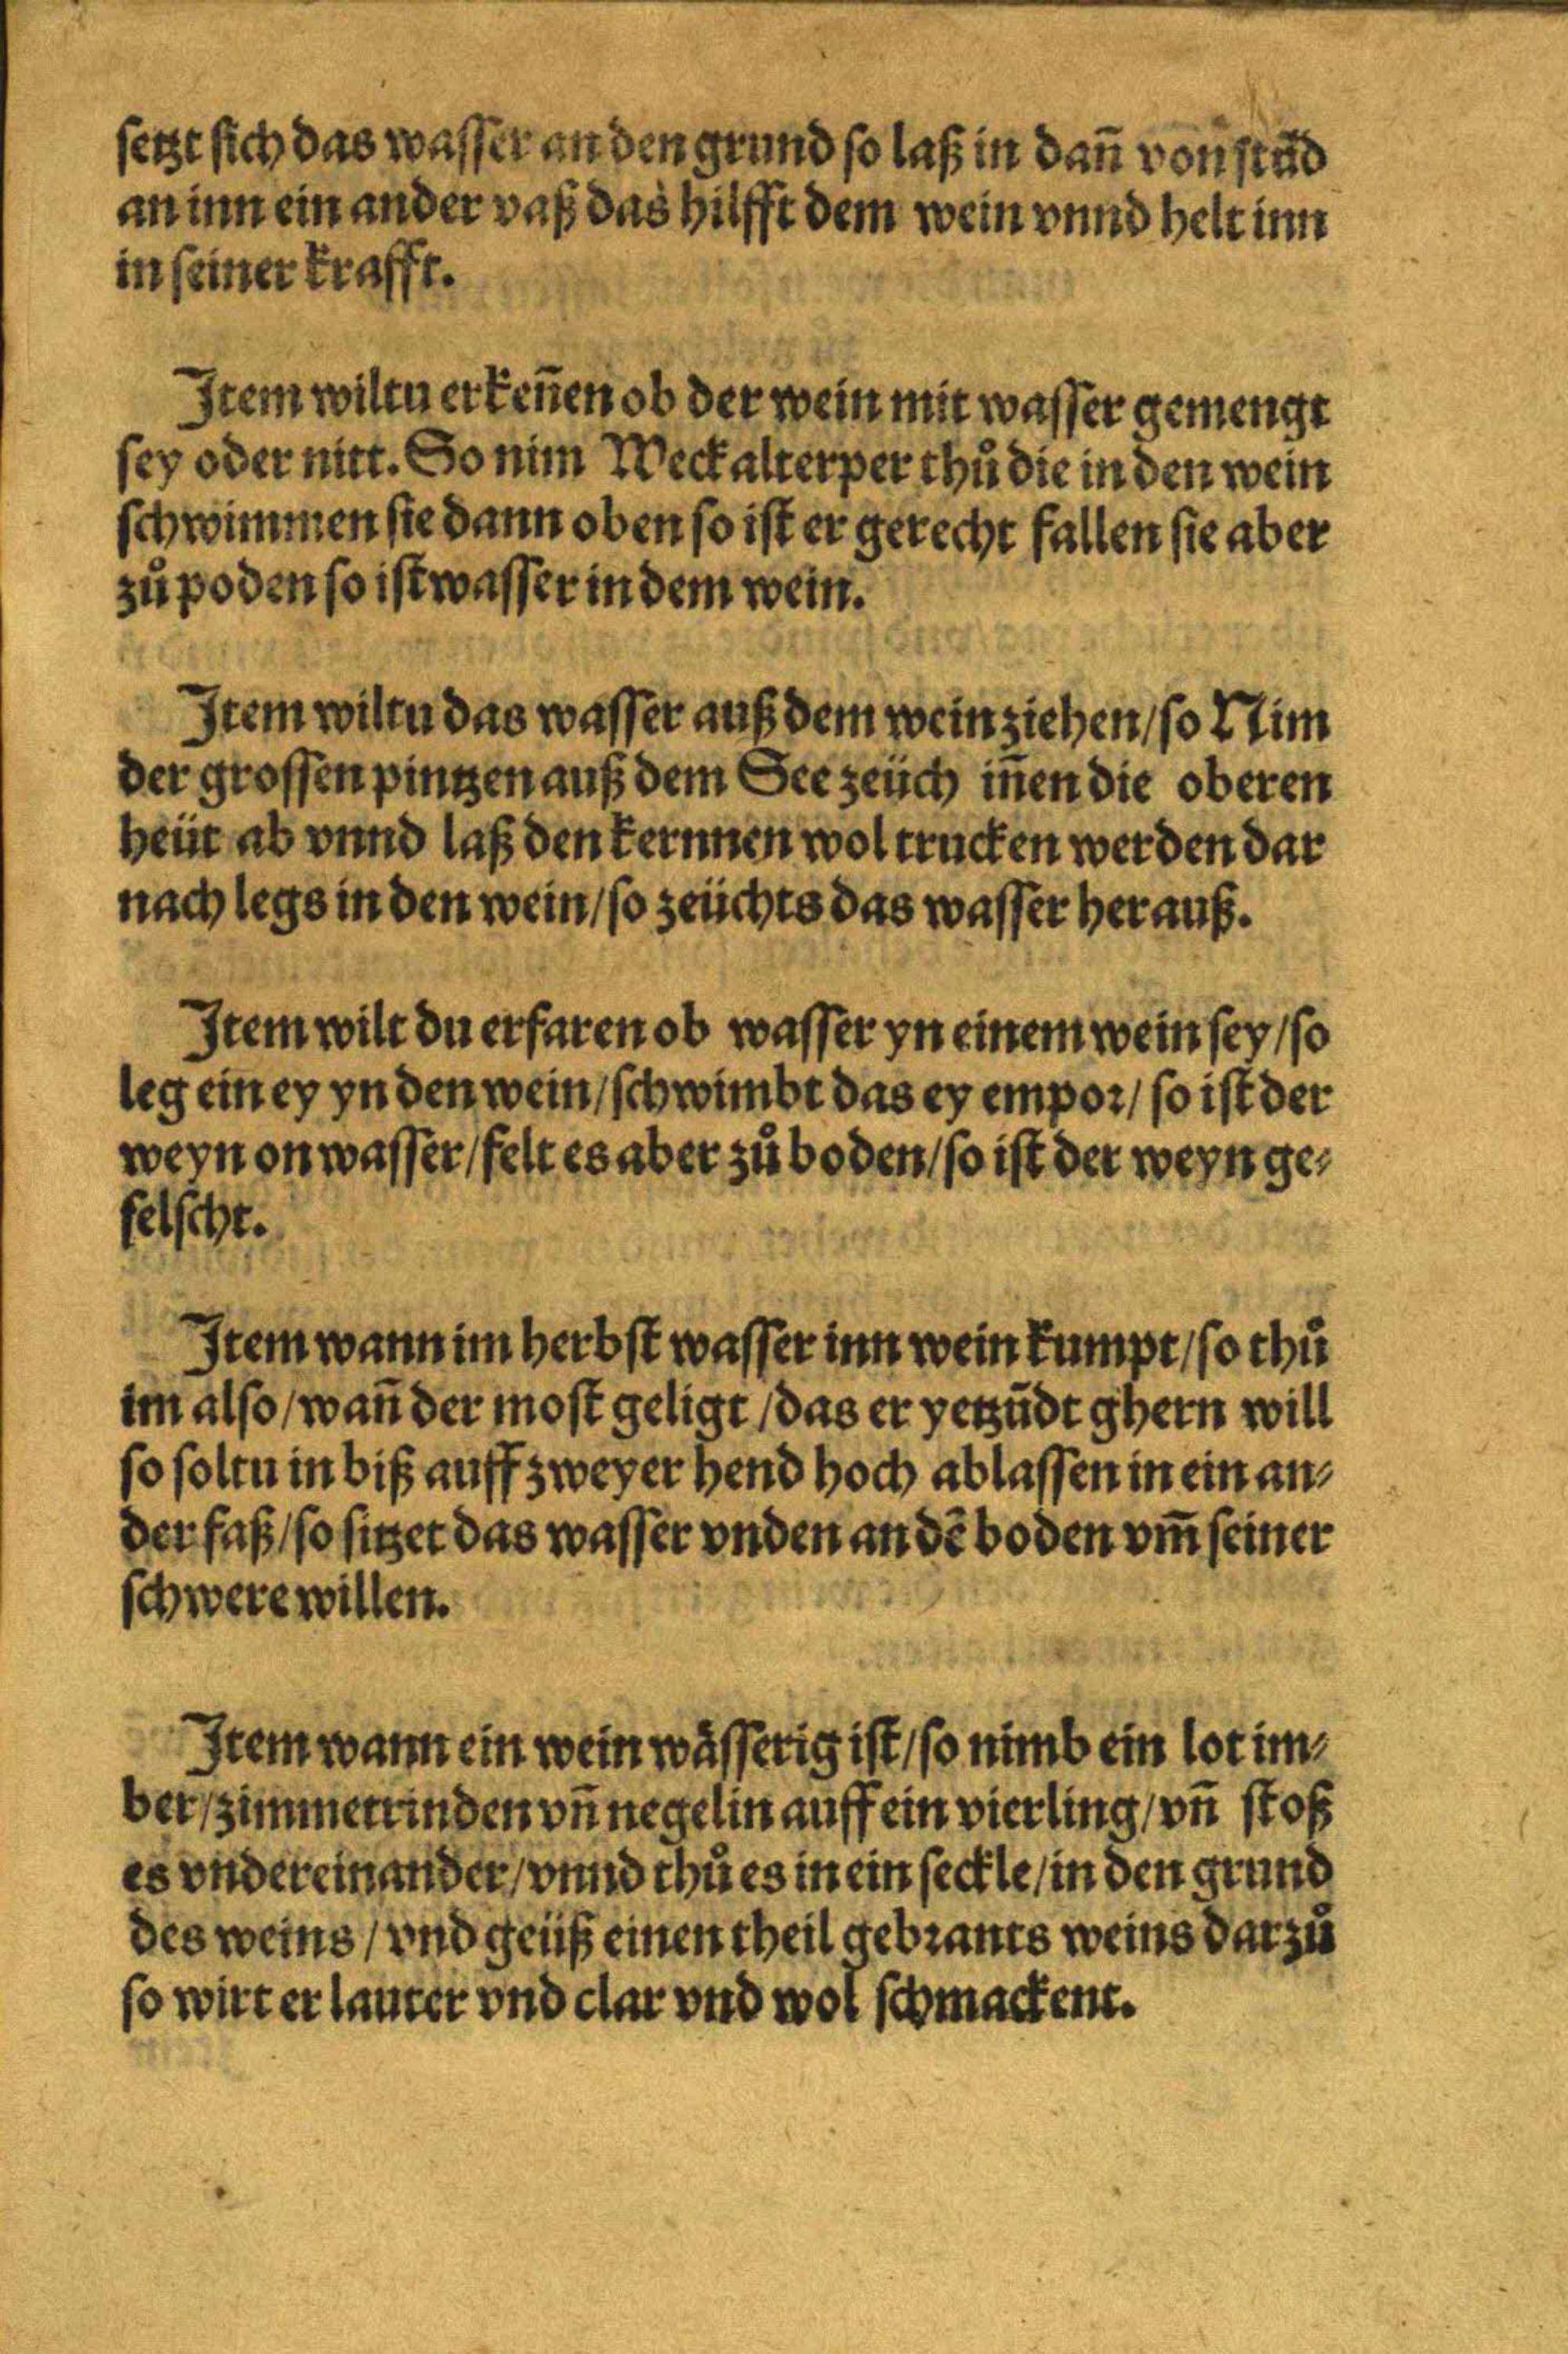 setzt sich das wasser an den grund so laß in dan̄ von stūd
an inn ein ander vaß das hilfft dem wein vnnd helt inn
in seiner krafft.
Item wiltu erken̄en ob der wein mit wasser gemengt
sey oder nitt. So nim Weckalterper thů die in den wein
schwimmen sie dann oben so ist er gerecht fallen sie aber
zů poden so ist wasser in dem wein.
Item wiltu das wasser auß dem wein ziehen/so Nim
der grossen pintzen auß dem See zeüch in̄en die oberen
heüt ab vnnd laß den kernnen wol trucken werden dar
nach legs in den wein/so zeüchts das wasser herauß.
Item wilt du erfaren ob wasser yn einem wein sey/so
leg ein ey yn den wein/schwimbt das ey empor/so ist der
weyn on wasser/felt es aber zů boden/so ist der weyn ge⸗
felscht.
Item wann im herbst wasser inn wein kumpt/so thů
im also/wan̄ der most geligt/das er yetzūdt ghern will
so soltu in biß auff zweyer hend hoch ablassen in ein an⸗
der faß/so sitzet das wasser vnden an dē boden vm̄ seiner
schwere willen.
Item wann ein wein wåsserig ist/so nimb ein lot im⸗
ber/zimmetrinden vn̄ negelin auff ein vierling/vn̄ stoß
es vndereinander/vnnd thů es in ein seckle/in den grund
des weins/vnd geüß einen theil gebrants weins darzů
so wirt er lauter vnd clar vnd wol schmackent.